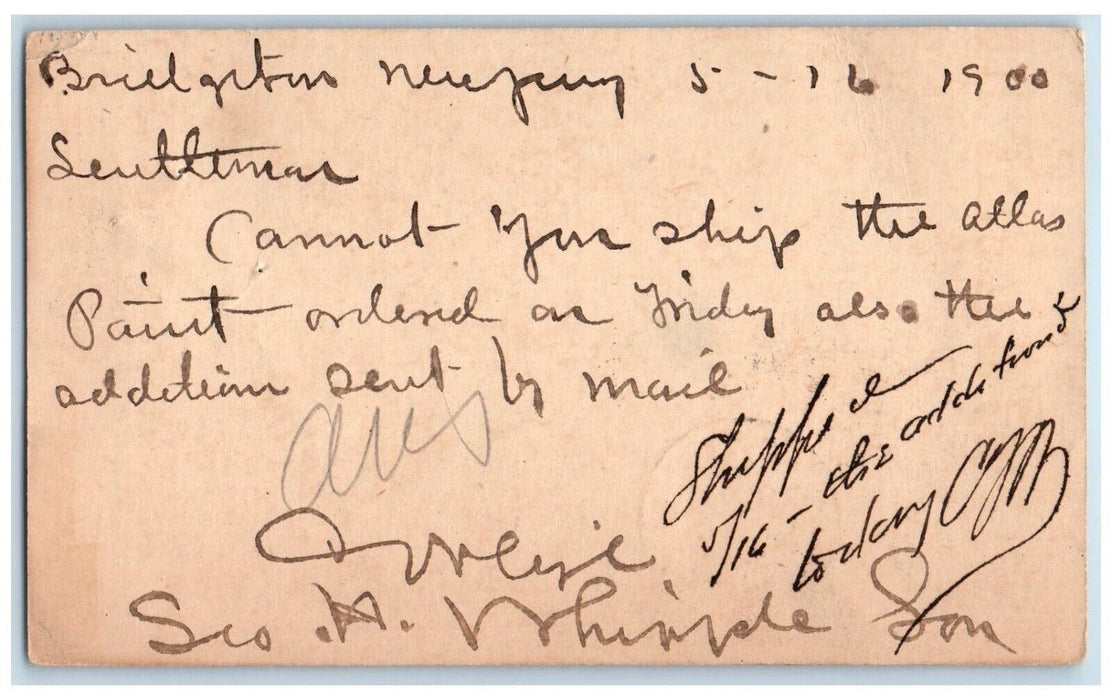 Bridgeton New Jersey 5-16 1900
Gentleman
Cannot You ship the Atlas
Paint ordered on Friday also the
addition sent by mail
Shipped
5/16 - the additions
today
Geo. H. Whipple Son